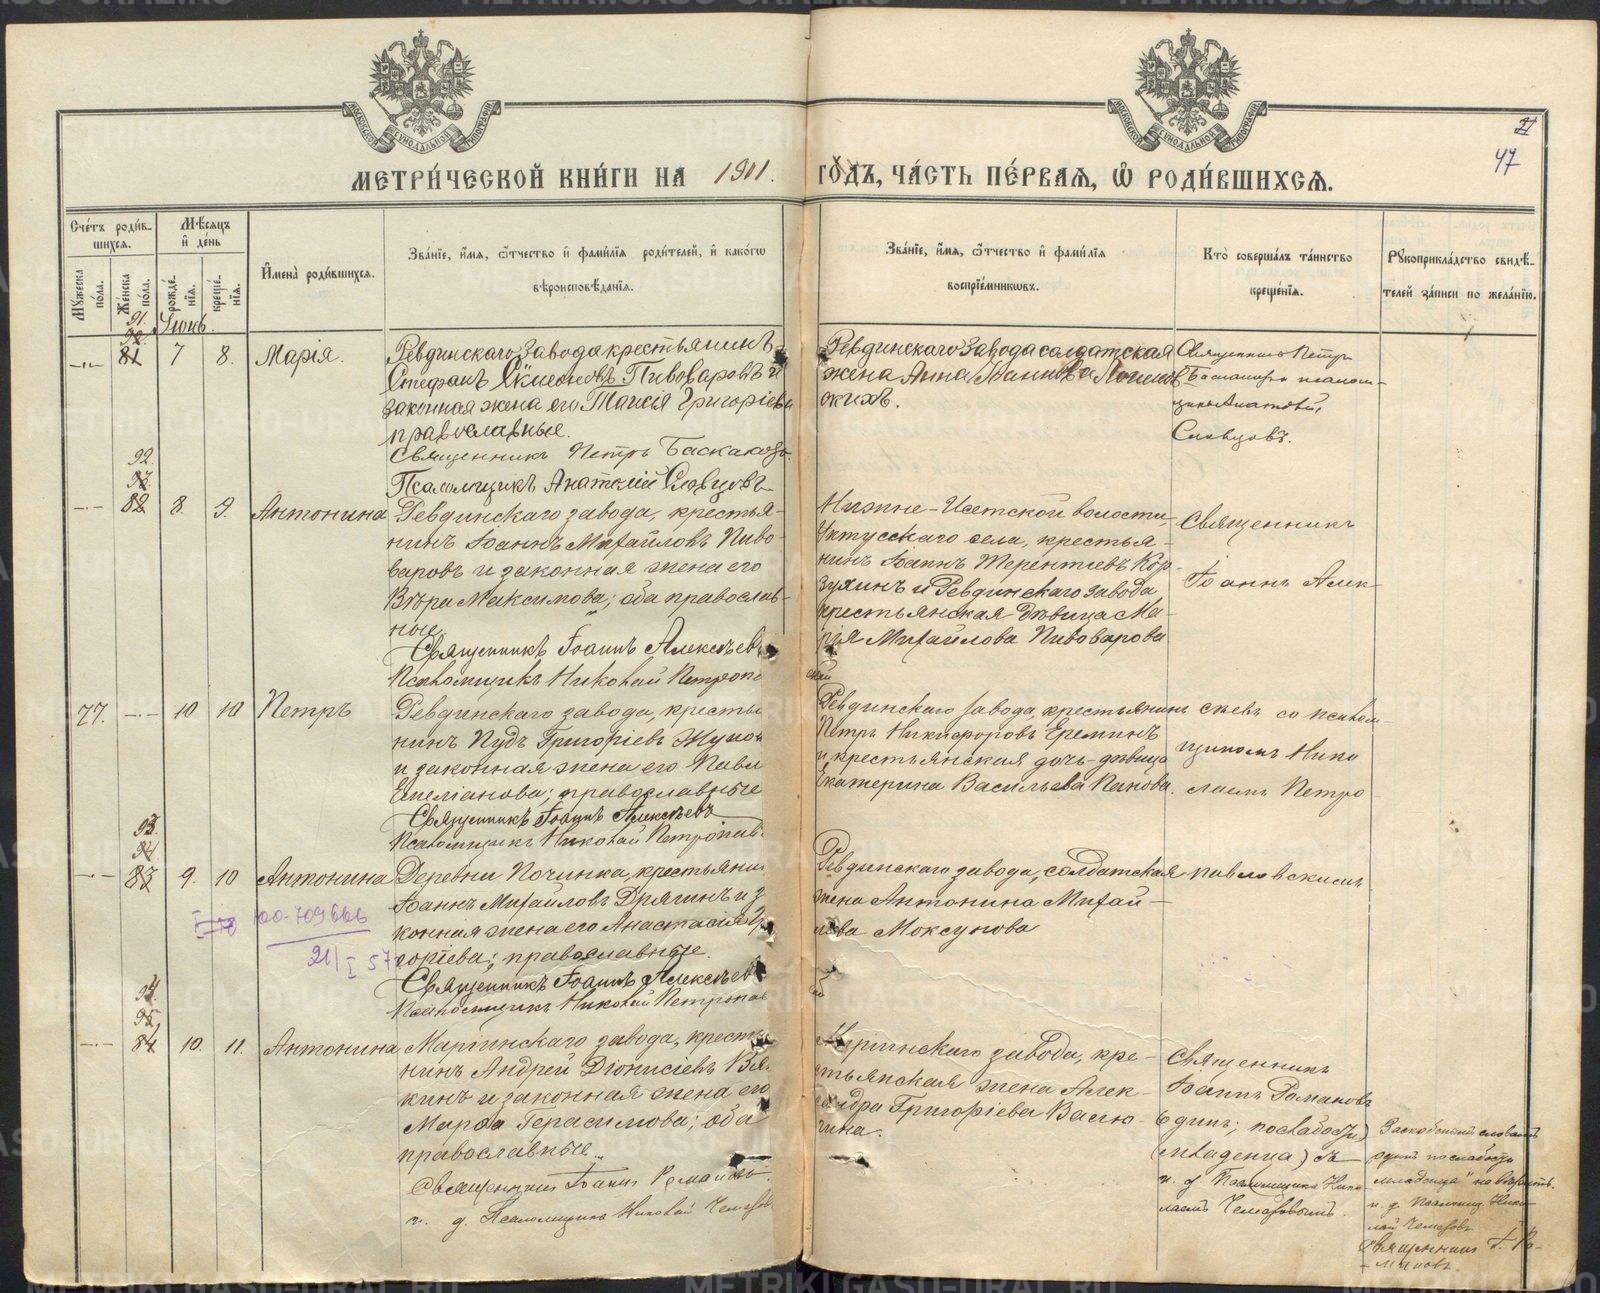 МЕТРИ́ЧЕСКОЙ КНИ́ГИ НА 1901. ГО́ДЪ, ЧА́СТЬ ПЕ́РВАЯ, Ѡ РОДИ́ВШИХСЯ.
47
Сче́тъ роди́в-
шихся.
Мꙋ́жеска по́ла.
Же́нска по́ла.
Мѣ́сяцъ и҆ де́нь
рожде́-
нїя.
креще́-
нїя.
И҆мена̀ роди́вшихся.
Зва́нїе, и҆́мя, ѻ҆́тчество и҆ фами́лїя роди́телей, и҆ како́гѡ
вѣроисповѣ́данїя.
Зва́нїе, и҆́мя, ѻ҆́тчество и҆ фами́лїя
воспрїе́мниковъ.
Кто̀ соверша́лъ та́инство
креще́нїя.
Рꙋкоприкла́дство свидѣ́-
телей за́писи по жела́нїю.
Іюнь.
91.
7 8. Марія.
Ревдинскаго Завода крестьянинъ
Стефанъ Пивоваровъ и
законная жена его Таисія Григоріева
православные.
Священникъ Петръ
Псаломщикъ Словцовъ
Ревдинскаго Завода солдатская
жена Анна
скихъ.
Священникъ Петръ
Словцовъ.
92.
82 8. 9. Антонина
Ревдинскаго завода, крестья-
нинъ Іоаннъ Михайловъ Пиво-
варовъ и законная жена его
Вѣра Максимова; оба православ-
ные.
Священникъ Іоаннъ Алексѣевъ
Псаломщикъ Николай Петропа
Нижне-Исетской волости,
Уктусскаго села, крестья-
нинъ Іоаннъ Терентіевъ Кор-
зухинъ и Ревдинскаго завода
крестьянская дѣвица Ма-
рія Михайлова Пивоварова
Священникъ
Іоаннъ Алек-
77. 10 10 Петръ
Ревдинскаго завода, крестья
нинъ Пудъ Григоріевъ
и законная жена его Павл
Емеліанова; православные
Священникъ Іоаннъ Алексѣевъ
Псаломщикъ Николай Петропав
Ревдинскаго завода, крестьянинъ
Петръ Никифоровъ Ереминъ
и крестьянская дочь-дѣвица
Екатерина Васильева Панова.
сѣевъ со псалом-
щикомъ Нико
лаемъ Петро
93.
94
83 9. 10 Антонина
Деревни Починка, крестьяни
Іоаннъ Михайловъ Дрягинъ и з
конная жена его Анастасія Гр
горіева; православные.
Священникъ Іоаннъ Алексѣев
Псаломщикъ Николай Петропав
Ревдинскаго завода, солдатская
жена Антонина Михай-
лова Моксунова
павловскимъ
100-709666
21/I 57
94.
95.
84 10. 11. Антонина
Маріинскаго завода, кресть
нинъ Андрей Діонисіевъ Вя
кинъ и законная жена его
Марѳа Герасимова; оба
православные.
Священникъ Іоаннъ Романовъ
и. д. Псаломщика Николай Чемезов
Маріинскаго завода, кре-
стьянская жена Алек-
сандра Григоріева
Священникъ
Іоаннъ Романовъ
(одинъ; по слабости
младенца) съ
и. д. Псаломщика Нико
лаемъ Чемезовымъ.
одинъ по слабости
младенца"
и. д. Псаломщ. Нико-
лай Чемезовъ
Священникъ І. Ро-
мановъ.